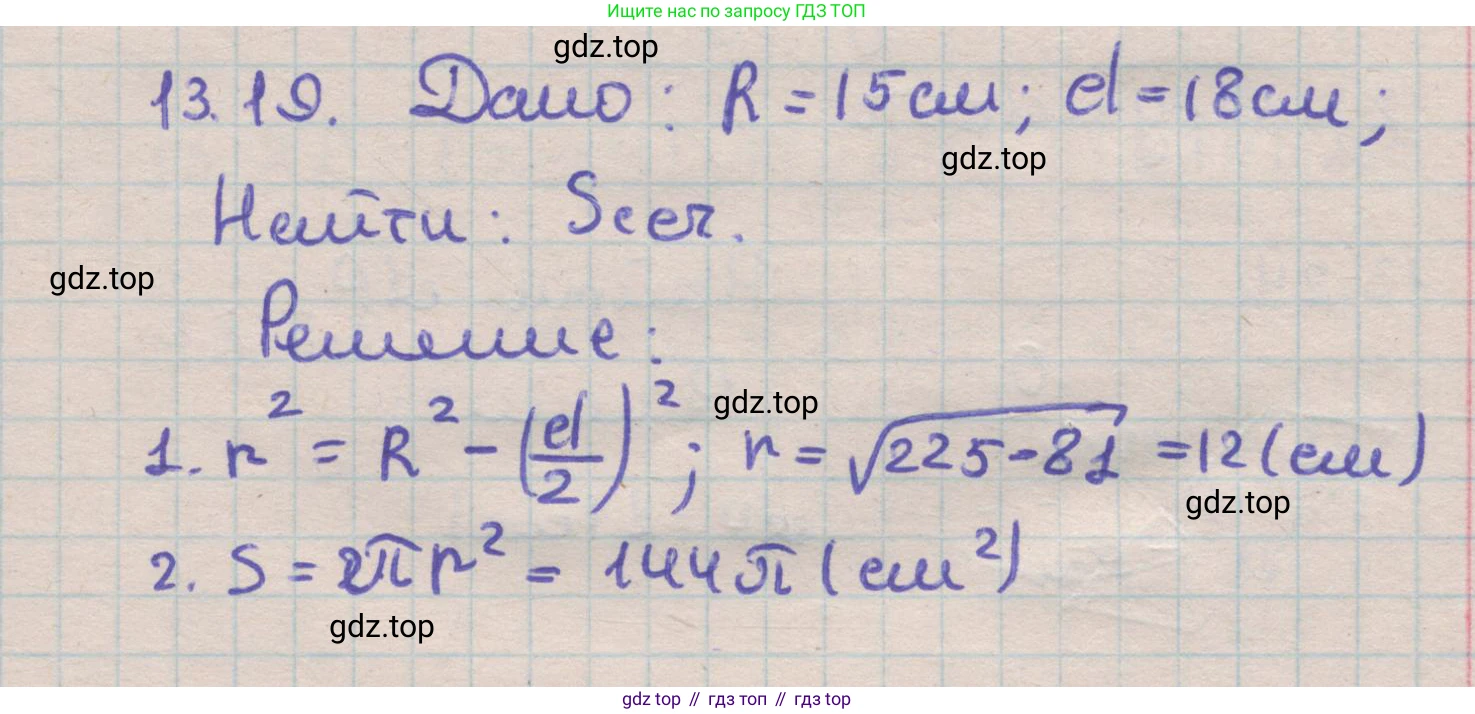 Ищите нас по запросу ГДЗ ТОП
gdz.top
13.19. Дано: R = 15 см; d = 18 см;
gdz.top
Найти: Sсеч.
gdz.top
Решение:
gdz.top
1. r² = R² - (d/2)²; r = √225-81 = 12 (см)
gdz.top
2. S = 2πr² = 144π (см²)
gdz.top
gdz top // гдз топ // gdz top